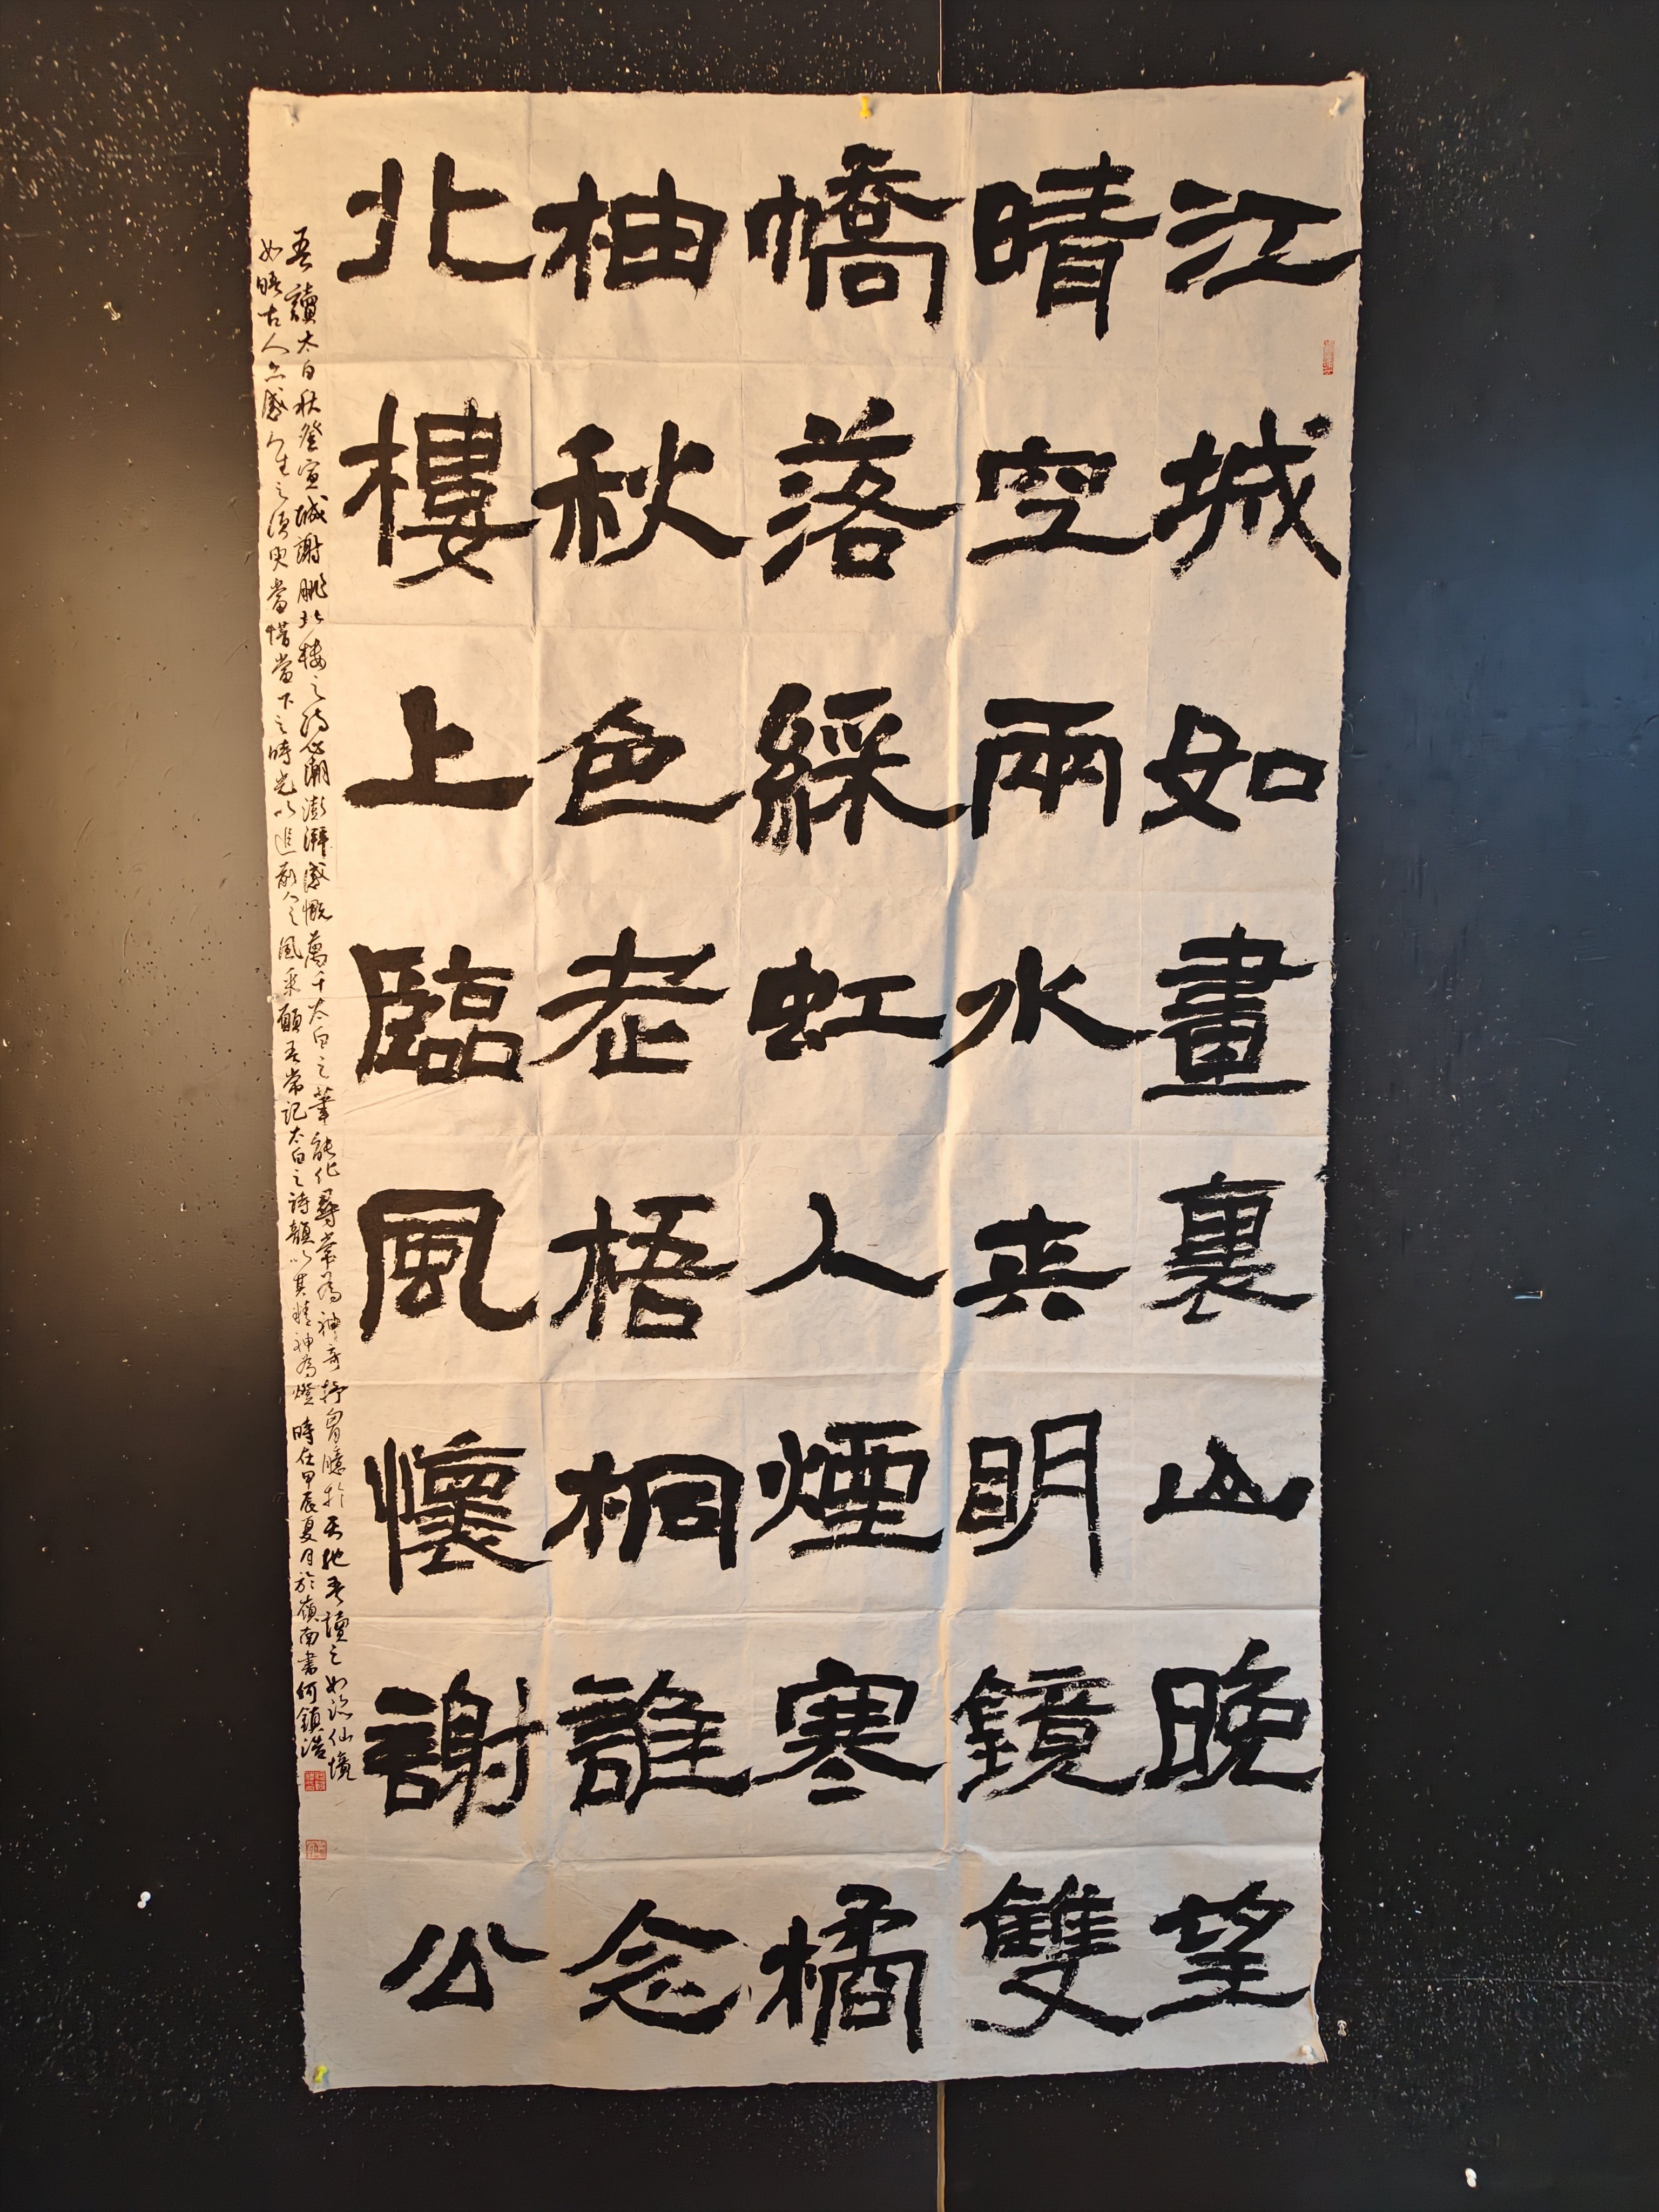 江城如畫裏山晚望
晴空兩水夾明鏡雙
橋落綵虹人煙寒橘
柚秋色老梧桐誰念
北樓上臨風懷謝公
吾讀太白秋登宣城謝朓北樓之詩心潮澎湃感慨萬千太白之筆能化尋常為神奇抒胷臆於天地吾讀之如臨仙境
如晤古人亦感人生之須臾當惜當下之時光以追前人之風采願吾常記太白之詩韻以其精神為燈 時在甲辰夏月於嶺南書何鎮浩